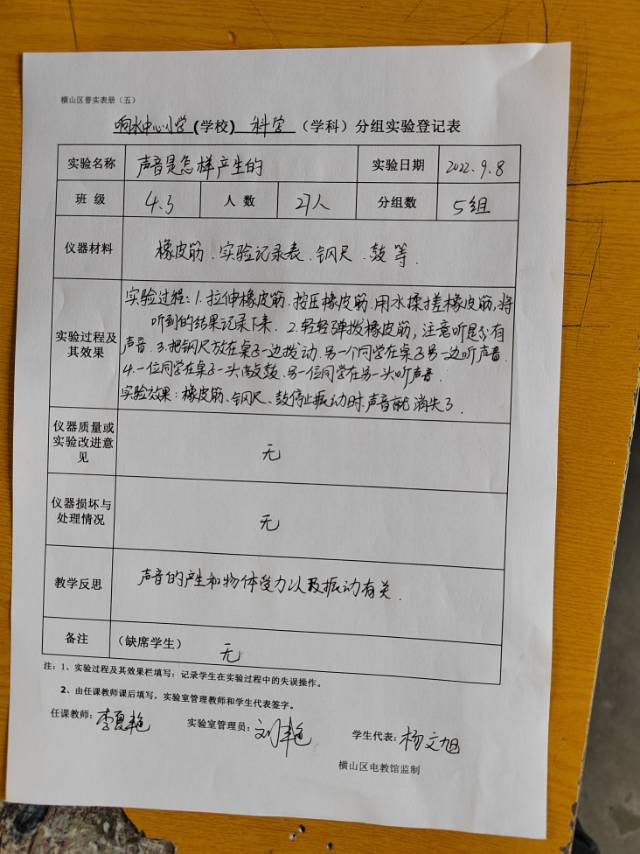 横山区普实表册（五）
响水中心小学（学校） 科学 （学科）分组实验登记表
实验名称 声音是怎样产生的 实验日期 2022.9.8
班 级 4.3 人 数 27人 分组数 5组
仪器材料 橡皮筋、实验记录表、钢尺、鼓等.
实验过程及其效果
实验过程：1.拉伸橡皮筋、按压橡皮筋、用水揉搓橡皮筋，将
听到的结果记录下来. 2.轻轻弹拨橡皮筋，注意听是否有
声音. 3.把钢尺放在桌子一边拨动，另一个同学在桌子另一边听声音.
4.一位同学在桌子一头敲鼓，另一位同学在另一头听声音.
实验效果：橡皮筋、钢尺、鼓停止振动时，声音就消失了.
仪器质量或实验改进意见 无
仪器损坏与处理情况 无
教学反思 声音的产生和物体受力以及振动有关.
备注 （缺席学生） 无
注：1、实验过程及其效果栏填写：记录学生在实验过程中的失误操作。
2、由任课教师课后填写，实验室管理教师和学生代表签字。
任课教师：李夏艳 实验室管理员：刘艳 学生代表：杨文旭
横山区电教馆监制